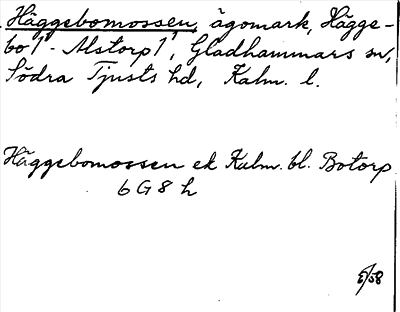 Häggebomossen, ägomark, Hägge-
bo 1¹ - Alstorp 1¹, Gladhammars sn,
Södra Tjusts hd, Kalm. l.
Häggebomossen ek Kalm. bl. Botorp
6 G 8 h
5/58